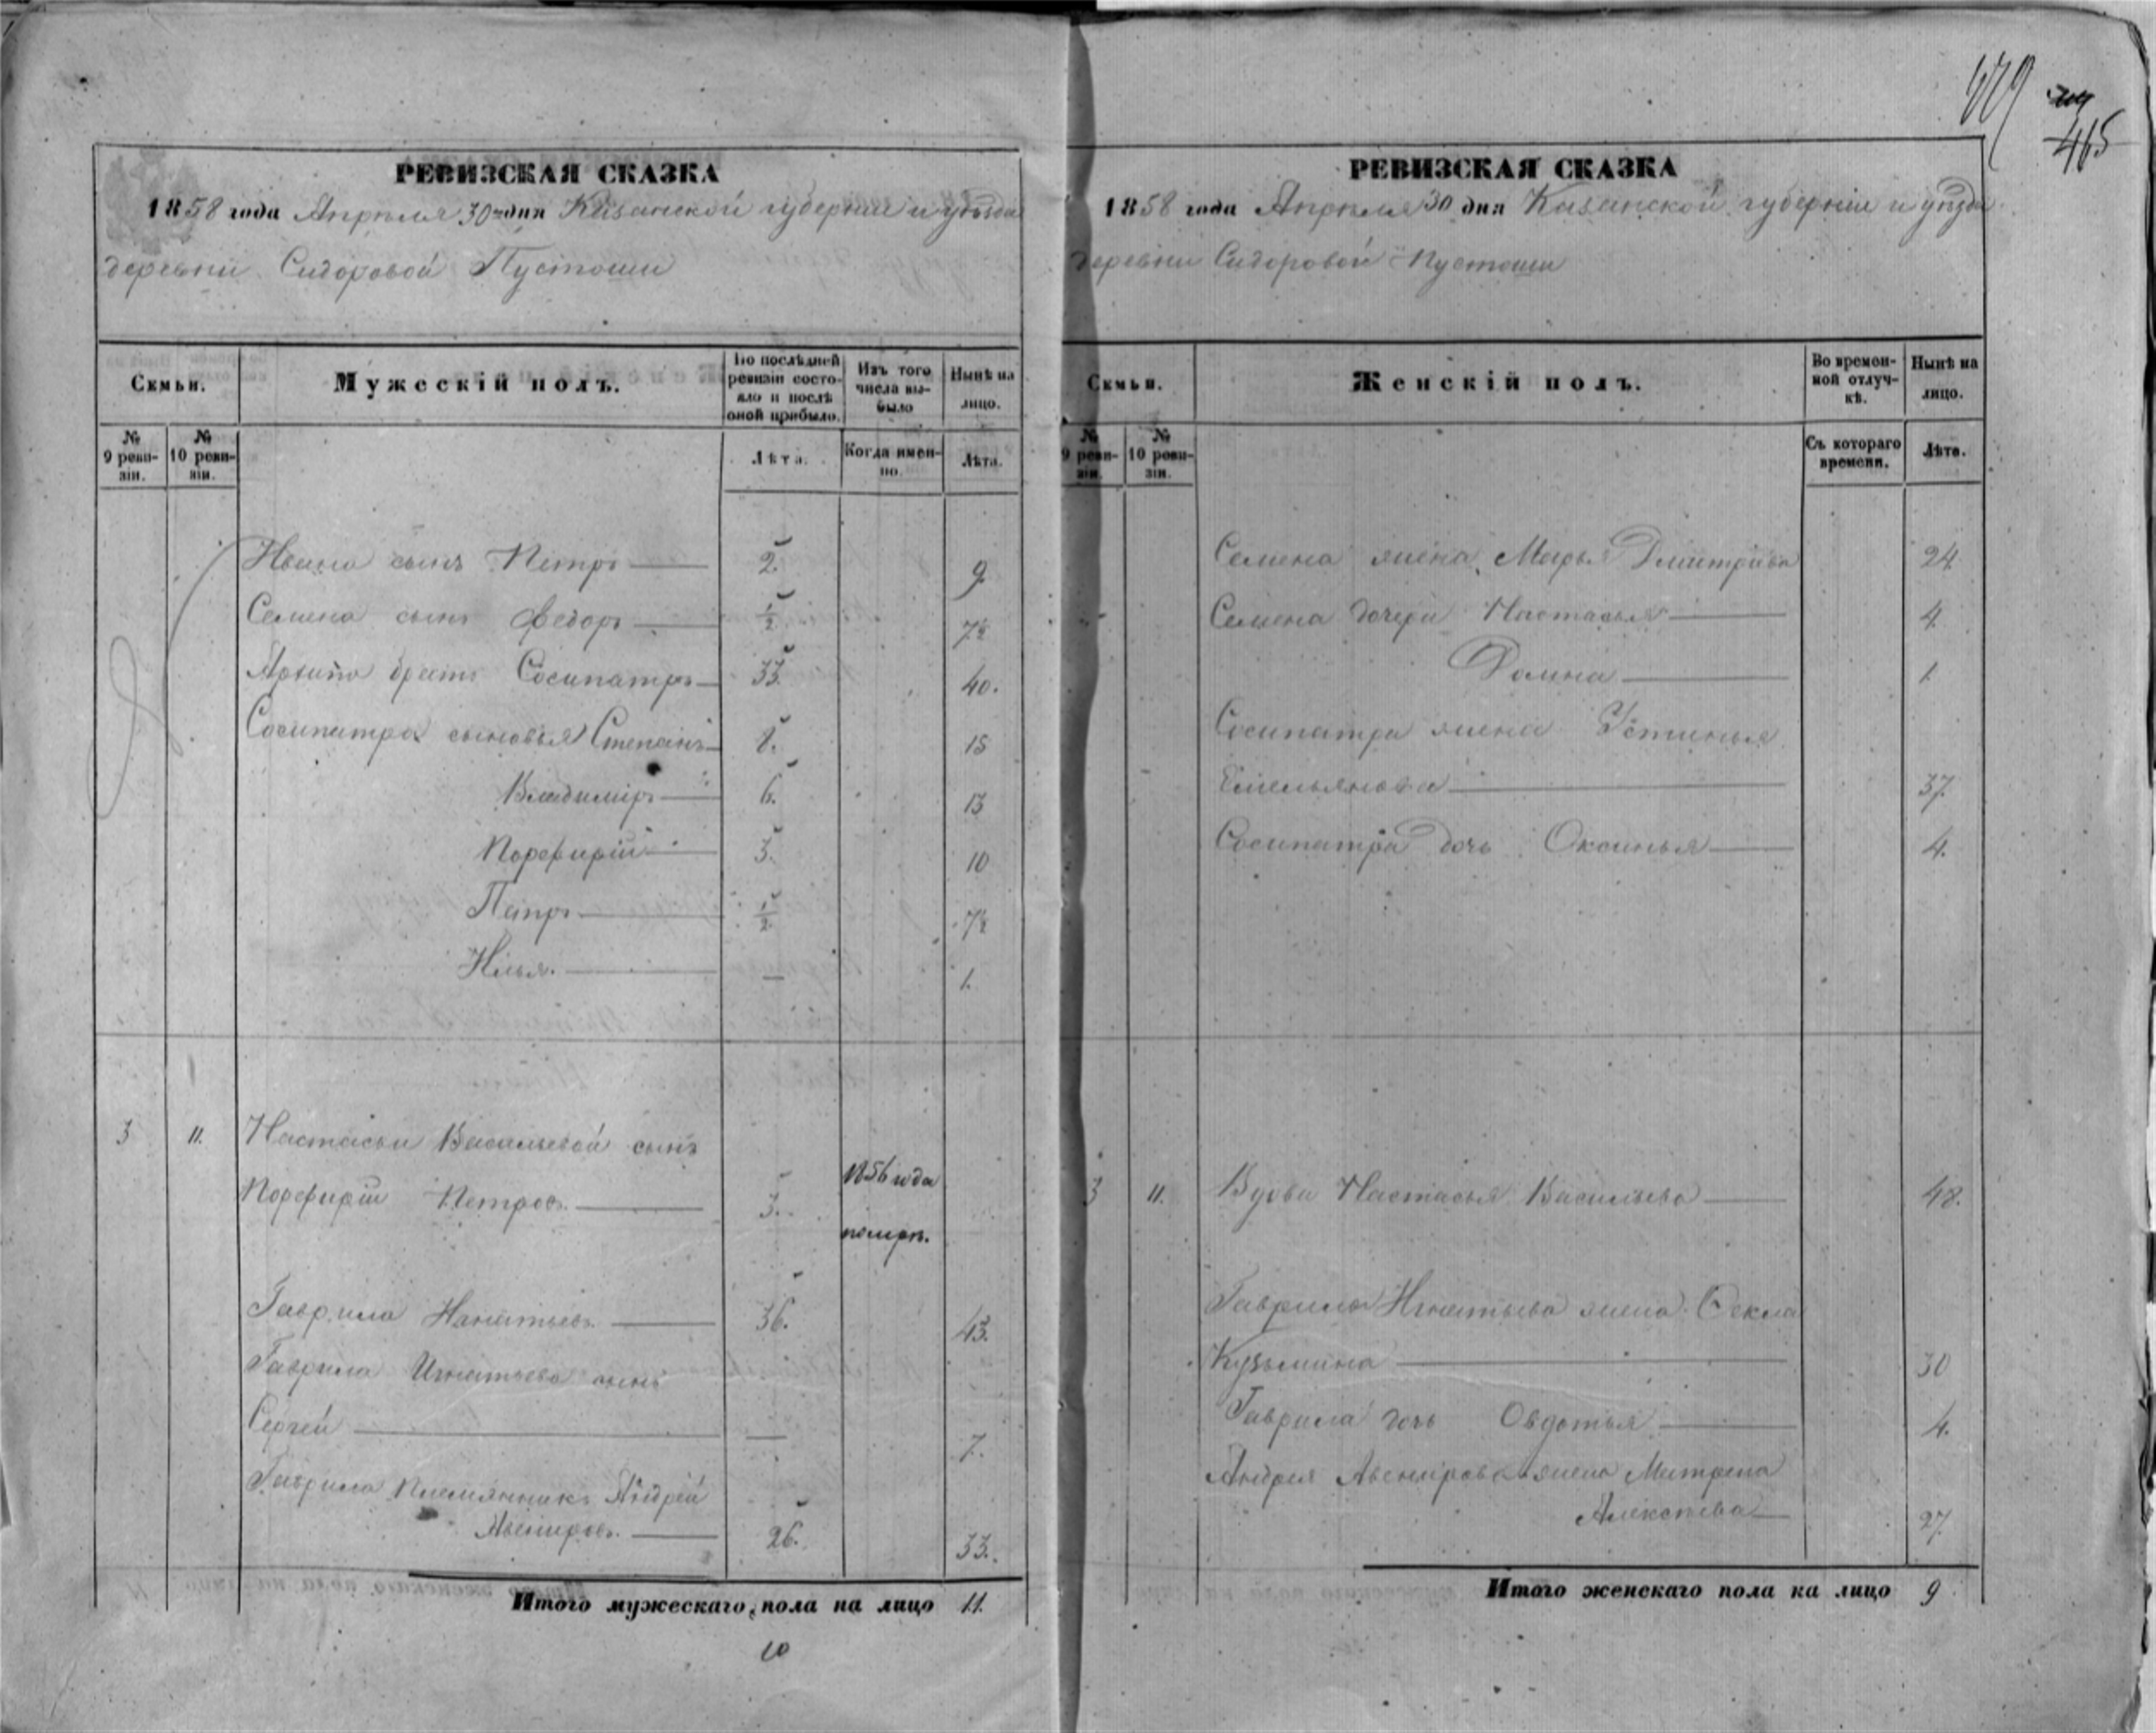 479
465
РЕВИЗСКАЯ СКАЗКА
1858 года Апрѣля 30 дня Казанской губерніи и уѣзда
деревни Сидоровой Пустоши
Семьи.
Мужескій полъ.
По послѣдней ревизіи состояло и послѣ оной прибыло.
Изъ того числа выбыло
Нынѣ на лицо.
№ 9 ревизіи.
№ 10 ревизіи.
Лѣта.
Когда именно.
Лѣта.
Ивана сынъ Петръ 2. 9
Семена сынъ Федоръ 1/2 7 1/2
братъ Сосипатръ 33. 40.
Сосипатра сыновья Степанъ 8. 15
Владиміръ 6. 13
Порфирій 3. 10
Петръ 1/2 7 1/2
Илья. — 1.
3 11. Настасьи Васильевой сынъ
Порфирій Петровъ. 3. 1856 года
померъ.
Гаврила Игнатьевъ. 36. 43.
Гаврила Игнатьева сынъ
Сергей — 7.
Гаврила племянникъ Андрей
Авенировъ. 26. 33.
Итого мужескаго пола на лицо 11.
10
РЕВИЗСКАЯ СКАЗКА
1858 года Апрѣля 30 дня Казанской губерніи и уѣзда
деревни Сидоровой Пустоши
Семьи.
Женскій полъ.
Во временной отлучкѣ.
Нынѣ на лицо.
№ 9 ревизіи.
№ 10 ревизіи.
Съ котораго времени.
Лѣта.
Семена жена Марья Дмитріева 24
Семена дочери Настасья 4
Домна 1
Сосипатра жена Устинья
Емельянова 37.
Сосипатра дочь Оксинья 4.
3 11. Вдова Настасья Васильева 48.
Гаврилы Игнатьева жена Фекла
Кузьмина 30
Гаврила дочь Овдотья 4.
Андрея Авенирова жена Матрена
Алексѣева 27
Итого женскаго пола на лицо 9